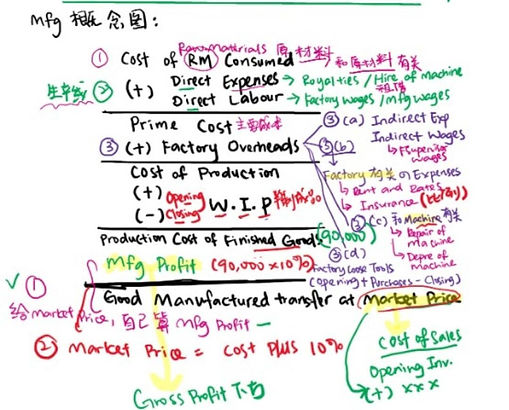 Mfg 概念图:
Raw Materials 原材料
① Cost of RM Consumed → 和原材料有关
生产线 ② (+) Direct Expenses → Royalties / Hire of Machine
租理
Direct Labour → Factory Wages / Mfg Wages
Prime Cost 主要成本
③ (+) Factory Overheads
③ (a) Indirect Exp
Indirect Wages
↳ F Supervisor wages
③ (b)
Factory 有关 の Expenses
↳ Rent and Rates
↳ Insurance (比例)
③ (c) 和 Machine 有关
↳ Repair of Machine
↳ Depre of Machine
③ (d)
Factory Loose Tools
(Opening + Purchases - Closing)
Cost of Production
(+) Opening
(-) Closing
W.I.P
Production Cost of Finished Goods (90,000)
Mfg Profit (90,000 x 10%)
Good Manufactured transfer at Market Price
✓ ①
给 market Price, 自己算 Mfg Profit
② Market Price = Cost Plus 10%
Gross Profit 下面
Cost of Sales
Opening Inv.
(+) xxx